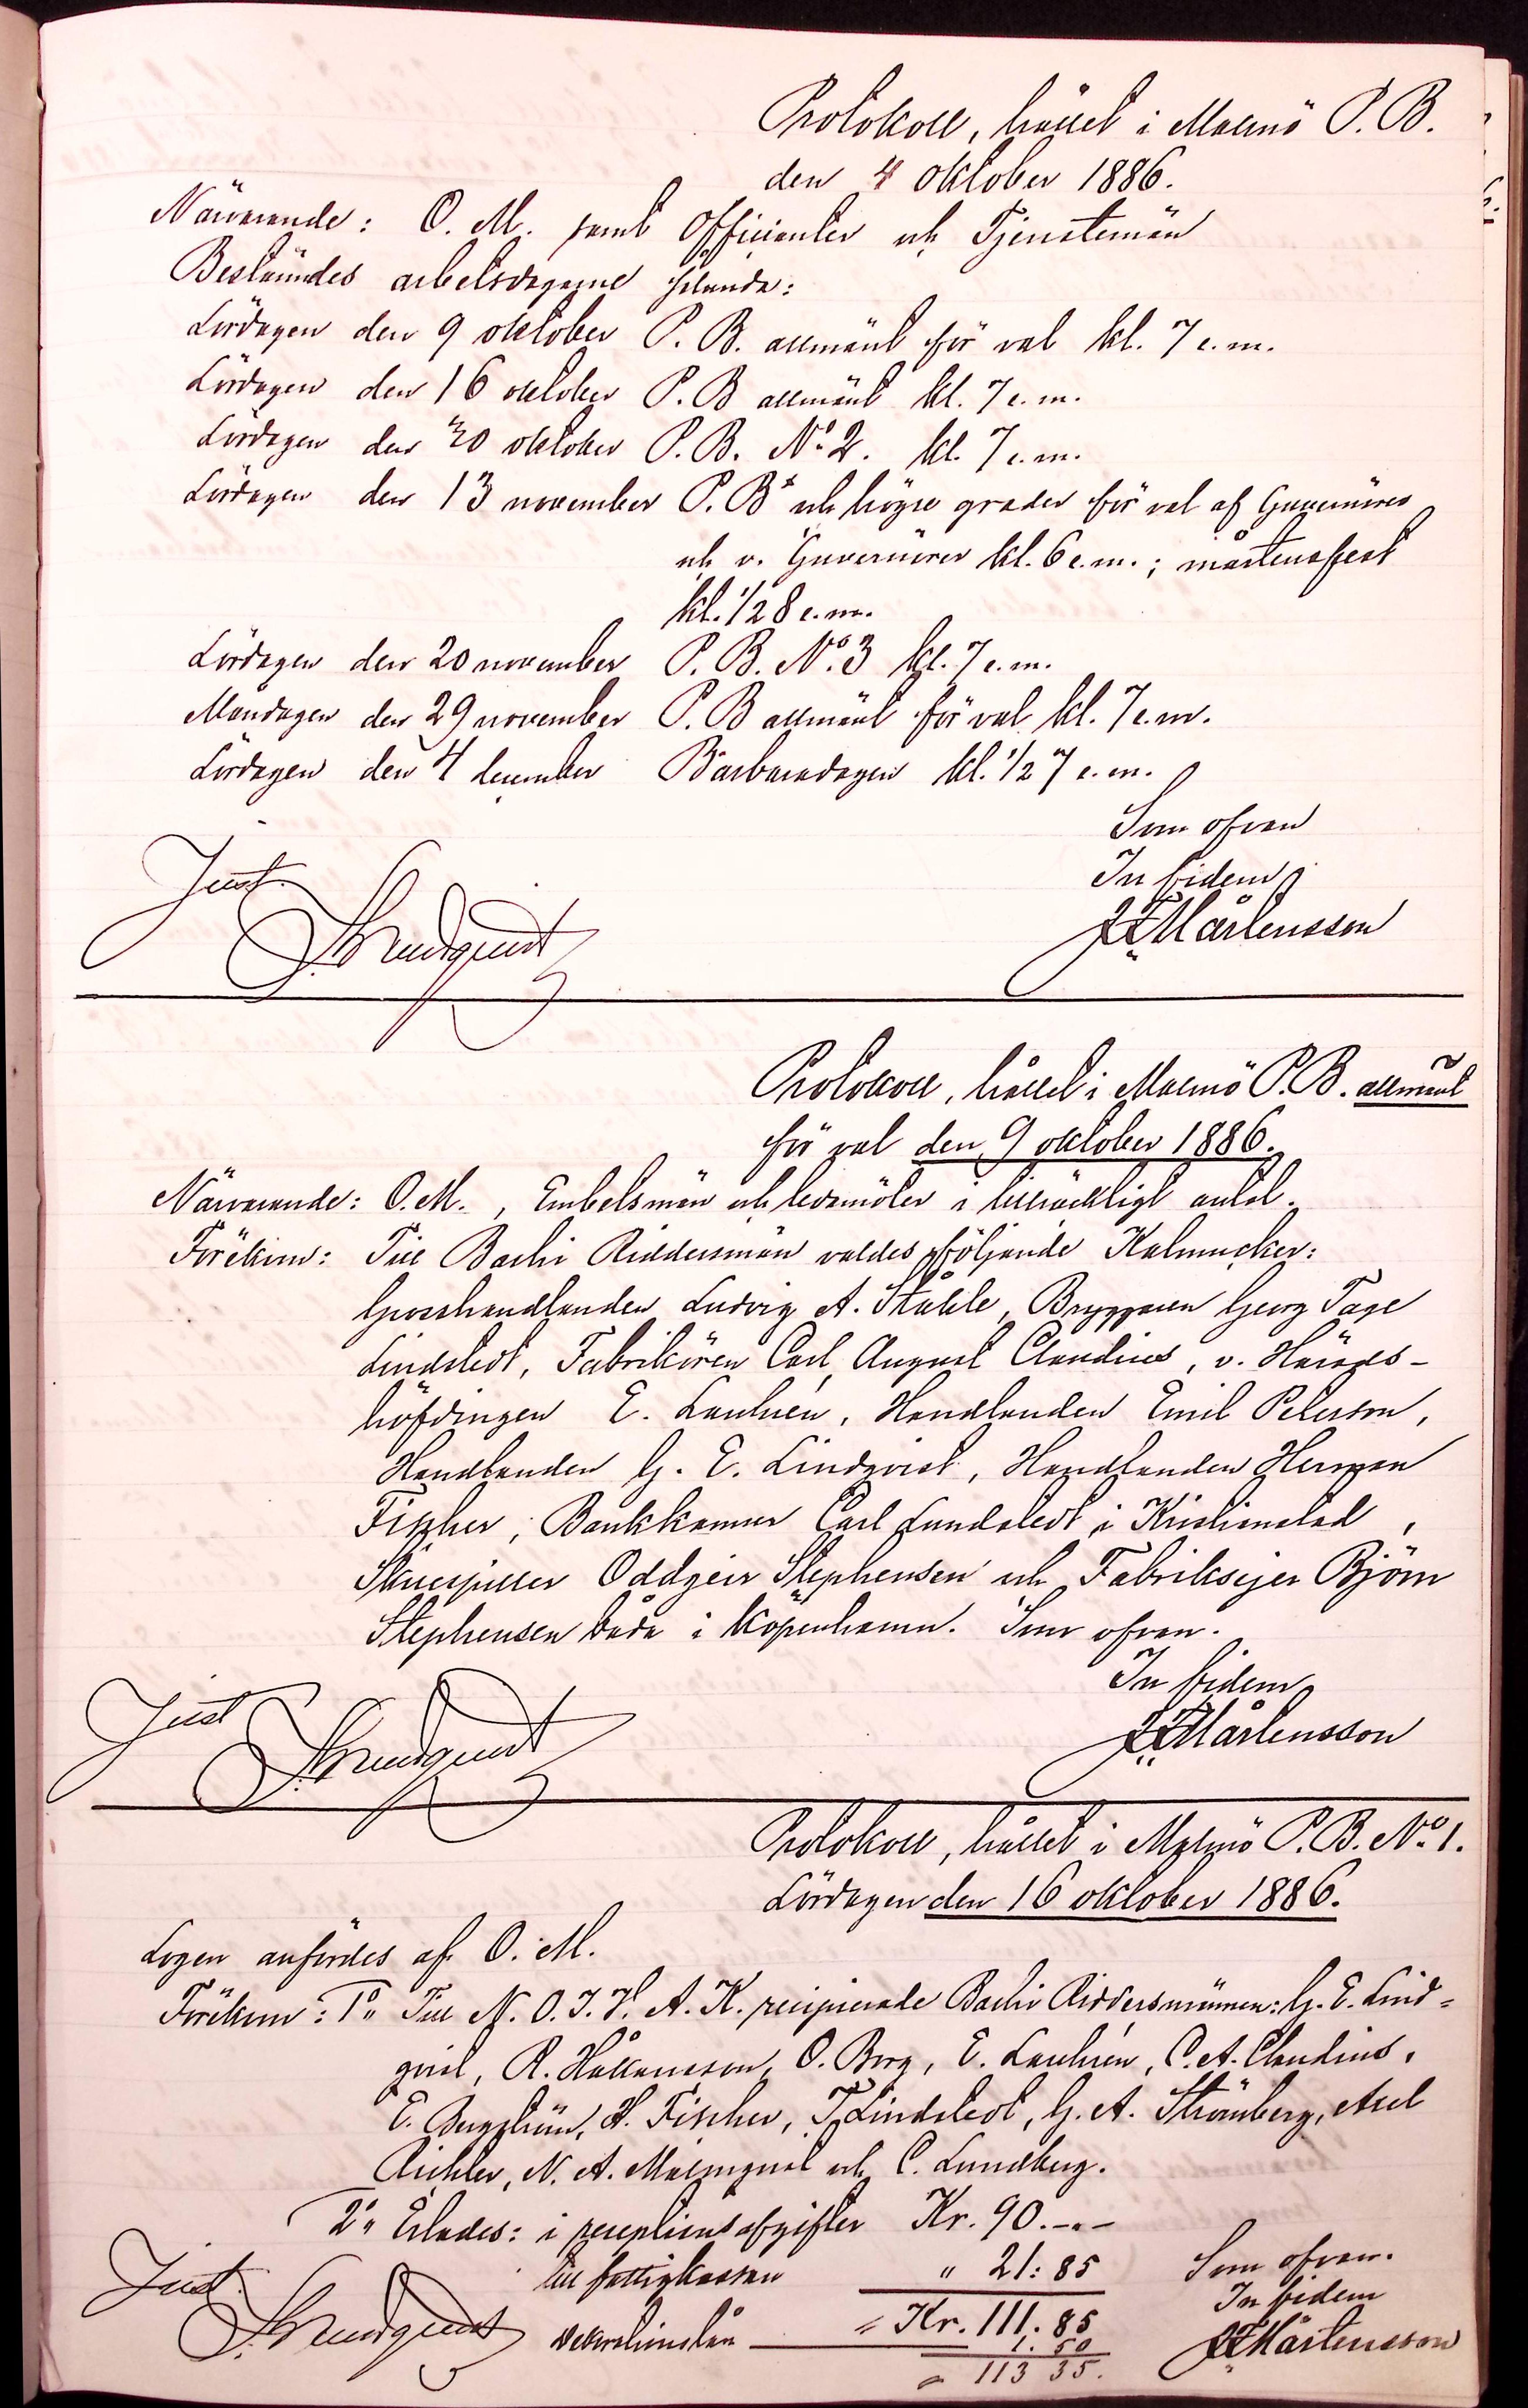 Protokoll, hållet i Malmö P. B.
den 4 oktober 1886.
Närvarande: O. M. samt Officianter och Tjenstemän
Bestämdes arbetsdagarne sålunda:
Lördagen den 9 oktober P. B. allmänt för val kl. 7 e.m.
Lördagen den 16 oktober P. B allmänt kl. 7 e.m.
Lördagen den 30 oktober P. B. No 2. kl. 7 e.m.
Lördagen den 13 november P. B och högre grader för val af Guvernörer
och v. Guvernörer kl. 6 e.m.; mårtensfest
kl. 1/2 8 e.m.
Lördagen den 20 november P. B. No. 3 kl. 7 e.m.
Måndagen den 29 november P. B allmänt för val kl. 7 e.m.
Lördagen den 4 december Barbaradagen kl. 1/2 7 e.m.
Som ofvan
In fidem
Just.
Mårtensson
Protokoll, hållet i Malmö P. B. allmänt
för val den 9 oktober 1886.
Närvarande: O. M., Embetsmän och ledamöter i tillräckligt antal.
Förekom: Till Bachi Riddersmän valdes följande Kalmucker:
Grosshandlanden Ludvig A. Ståhle, Bryggaren Georg Tage
Lindstedt, Fabrikören Carl August Claudius, v. Härads-
höfdingen E. Handlanden Emil Peterson,
Handlanden G. E. Lindqvist, Handlanden Herman
Fischer, Bankkamrer Carl Lundstedt i Kristianstad,
Skuespiller Oddgeir Stephensen och Fabriksejer Björn
Stephensen båda i Köpenhamn. Som ofvan.
In fidem
Just
Mårtensson
Protokoll, hållet i Malmö P. B. No. 1.
Lördagen den 16 oktober 1886.
Logen anfördes af O. M.
Förekom: 1o Till N. O. J. J. A. K. recipierade Bachi Riddersmännen: G. E. Lind-
qvist, R. Håkansson, O. Borg, E. C. A. Claudius,
E. Bergström, H. Fischer, T. Lindstedt, G. A. Strömberg, Axel
Richter, N. A. Malmqvist och C. Lundberg.
2o Erlades: i receptionsafgifter Kr. 90.-"-
till fattigkassan " 21:85
Som ofvan.
Just.
Kr. 111.85
In fidem
1.50
Mårtensson
113 35.